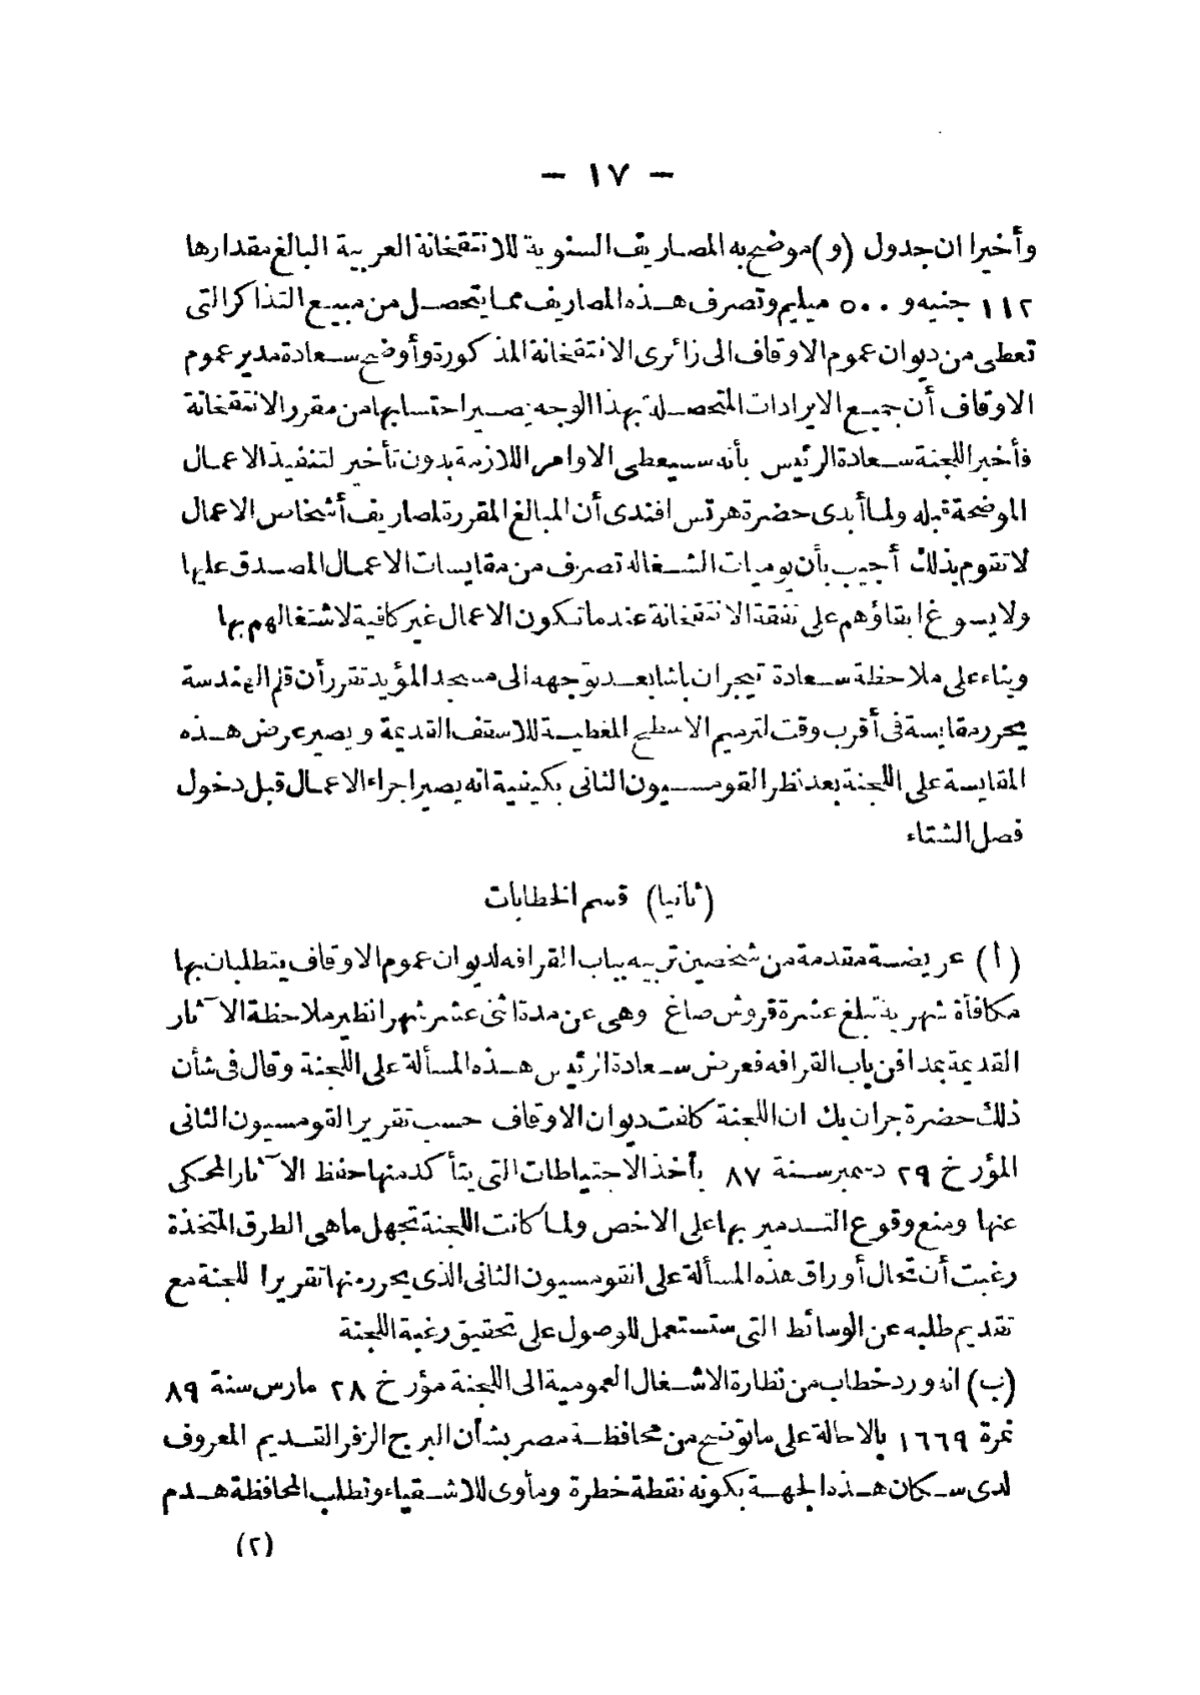 — ١٧ —
وأخيرا ان جدول (و) موضح به المصاريف السنوية للانتقخانة العربية البالغ مقدارها
١١٢ جنيه و ٥٠٠ مليم وتصرف هذه المصاريف مما يتحصل من مبيع التذاكر التى
تعطى من ديوان عموم الاوقاف الى زائرى الانتقخانة المذكورة وأوضح سعادة مدير عموم
الاوقاف أن جميع الايرادات المتحصلة بهذا الوجه يصير احتسابها من مقرر الانتقخانة
فأخبر اللجنة سعادة الرئيس بأنه سيعطى الاوامر اللازمة بدون تأخير لتنفيذ الاعمال
الموضحة قبله ولما أبدى حضرة هرتس افندى أن المبالغ المقررة لمصاريف أشخاص الاعمال
لا تقوم بذلك أجيب بأن يوميات الشغالة تصرف من مقايسات الاعمال المصدق عليها
ولا يسوغ ابقاؤهم على نفقة الانتقخانة عندما تكون الاعمال غير كافية لاشتغالهم بها
وبناء على ملاحظة سعادة تيجران باشا بعد توجهه الى مسجد المؤيد تقرر أن قلم الهندسة
يحرر مقايسة فى أقرب وقت لترميم الاسطح المغطية للاسقف القديمة ويصير عرض هذه
المقايسة على اللجنة بعد نظر القومسيون الثانى بكيفية انه يصير اجراء الاعمال قبل دخول
فصل الشتاء
(ثانيا) قسم الخطابات
(أ) عريضة مقدمة من شخصين تربيه بباب القرافه لديوان عموم الاوقاف يتطلبان بها
مكافأة شهرية تبلغ عشرة قروش صاغ وهى عن مدة اثنى عشر شهرا نظير ملاحظة الآثار
القديمة بمدافن باب القرافه فعرض سعادة الرئيس هذه المسألة على اللجنة وقال فى شأن
ذلك حضرة جران بك ان اللجنة كلفت ديوان الاوقاف حسب تقرير القومسيون الثانى
المؤرخ ٢٩ دسمبر سنة ٨٧ بأخذ الاحتياطات التى يتأكد منها حفظ الآثار المحكى
عنها ومنع وقوع التدمير بها على الاخص ولما كانت اللجنة تجهل ماهى الطرق المتخذة
رغبت أن تحال أوراق هذه المسألة على القومسيون الثانى الذى يحرر منها تقريرا للجنة مع
تقديم طلبه عن الوسائط التى ستستعمل للوصول على تحقيق رغبة اللجنة
(ب) انه ورد خطاب من نظارة الاشغال العمومية الى اللجنة مؤرخ ٢٨ مارس سنة ٨٩
نمرة ١٦٦٩ بالاحالة على ماتوضح من محافظة مصر بشأن البرج الزفر القديم المعروف
لدى سكان هذه الجهة بكونه نقطة خطرة ومأوى للاشقياء وتطلب المحافظة هدم
(٢)